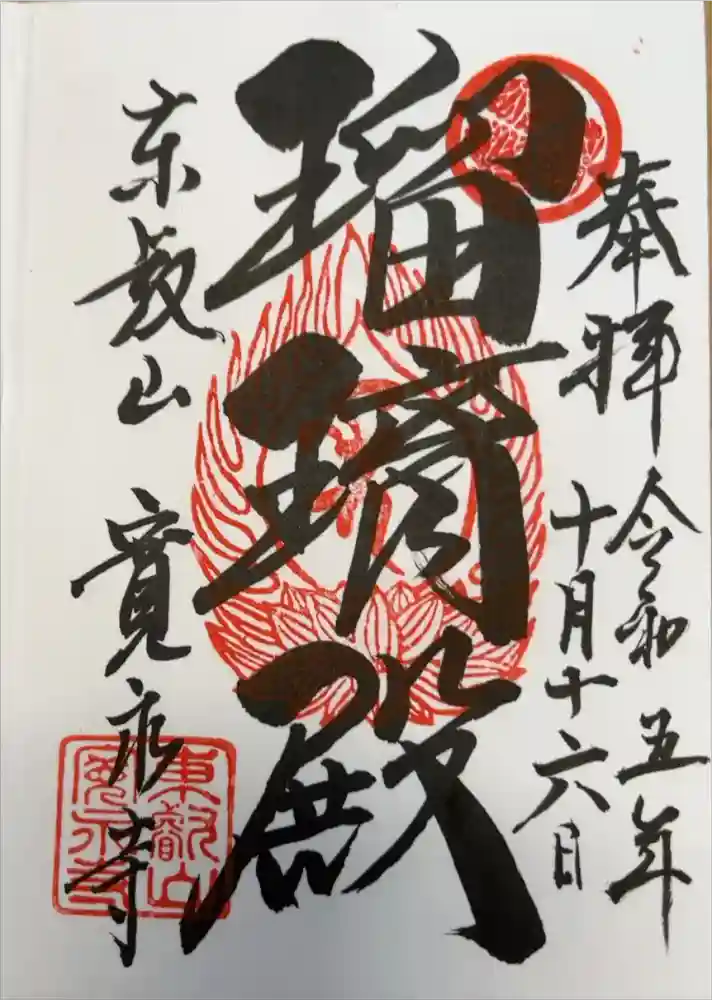 奉拝 令和五年
十月十六日
瑠璃殿
東叡山 寛永寺
東叡山
寛永寺